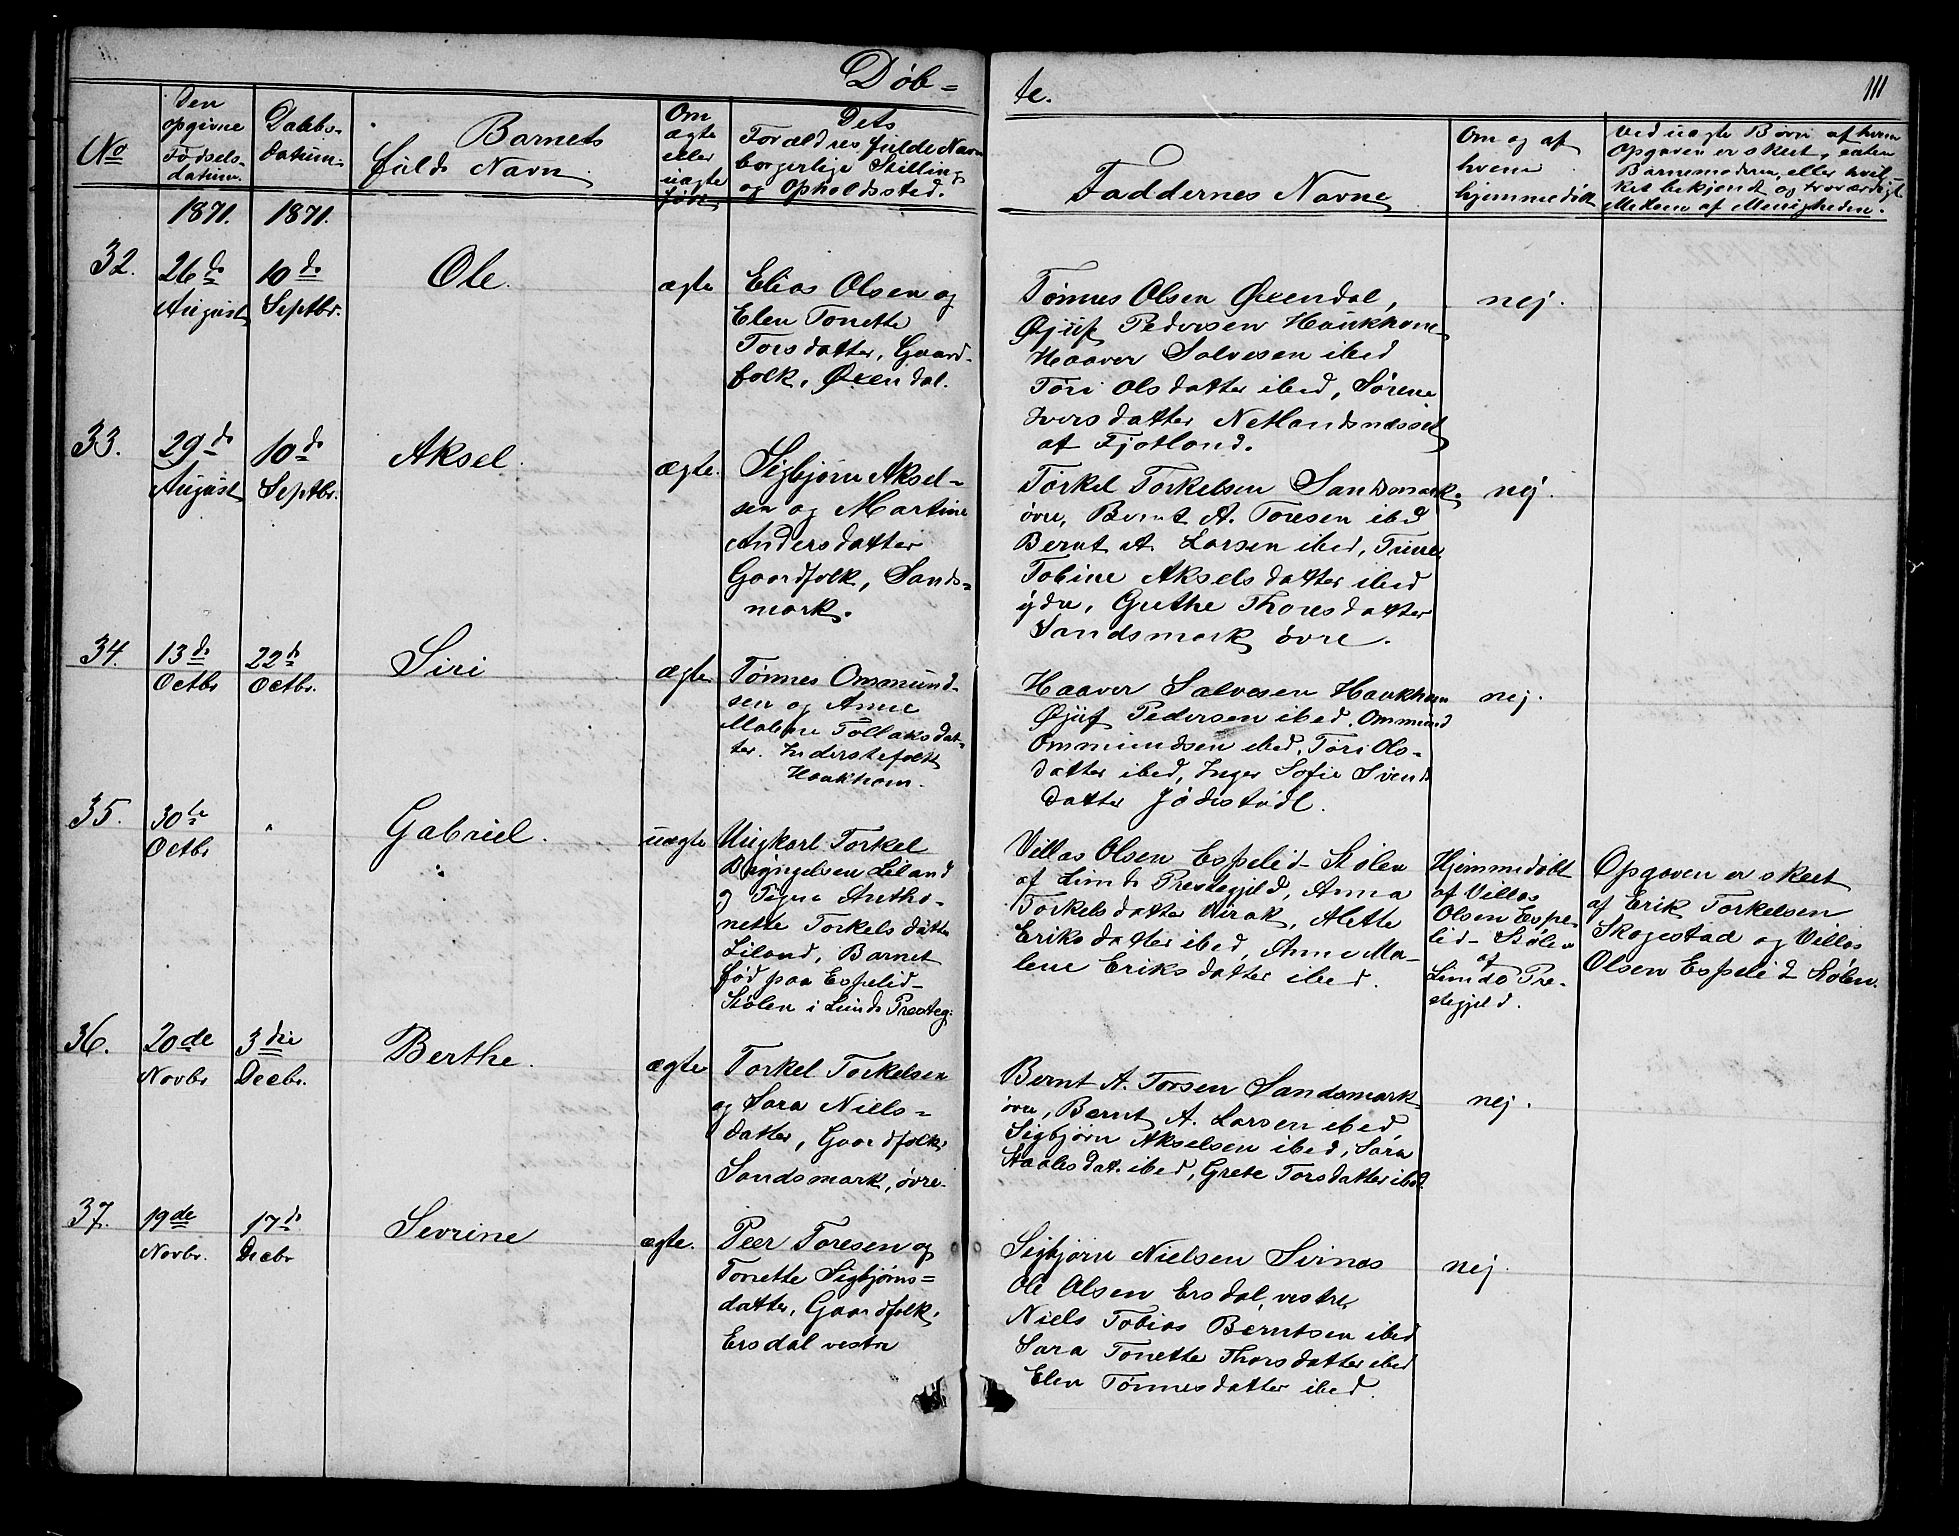 Døb-
te.
111
No
Den
opgivne
Fødsels-
datum.
Daabs-
datum.
Barnets
fulde Navn.
Om
ægte
eller
uægte
født
Dets
Forældres fulde Navn
borgerlige Stilling
og Opholdssted.
Faddernes Navne
Om og af
hvem
hjemmedøbt
Ved uægte Børn af hvem
Opgaven er skeet, enten
Barnemoderen, eller hvil-
ket bekjendt og troværdigt
Medlem af Menigheden.
1871.
1871.
32.
26de
August
10de
Septbr.
Ole.
ægte
Elias Olsen og
Elen Tonette
Torsdatter, Gaard-
folk, Øxendal.
Tønnes Olsen Øxendal,
Øjuf Pedersen Haukhom
Haaver Salvesen ibed
Tori Olsdatter ibed, Sørene
Iversdatter Netlandsndset
af Fjotland.
nej.
33.
29de
August
10de
Septbr.
Aksel.
ægte.
Sigbjørn Aksel-
sen og Martine
Andersdatter
Gaardfolk, Sands-
mark.
Torkel Torkelsen Sandsmark,
øvre, Bernt A. Toresen ibed
Bernt A. Larsen ibed, Trine
Tobine Akselsdatter ibed
ydre, Grethe Thoresdatter
Sandsmark øvre.
nej.
34.
13de
Octbr
22de
Octbr.
Siri
ægte
Tønnes Ommund-
sen og Anne
Malene Tollaksdat-
ter. Inderstefolk
Haukhom.
Haaver Salvesen Haukhom
Øjuf Pedersen ibed, Ommund
Ommundsen ibed, Tori Ols-
datter ibed, Inger Sofie Svends
datter Jødestødl.
nej.
35.
30te
Octbr
"
Gabriel.
uægte
Ungkarl Torkel
Liland
og Signe Antho-
nette Torkelsdatter
Liland, Barnet
født paa Espelid-
Stølen i Lunds Presteg:
Villas Olsen Espelid-Stølen
af Lunds Prestegjeld, Anna
Torkelsdatter Virak, Alette
Eriksdatter ibed, Anne Ma-
lene Eriksdatter ibed.
Hjemmedøbt
af Villas
Olsen Espe-
lid-Stølen
af
Lunds Pre-
stegjeld.
Opgaven er skeet
af Erik Torkelsen
Skogestad og Villas
Olsen Espelid Stølen.
36.
20de
Novbr
3die
Decbr.
Berthe.
ægte
Torkel Torkelsen
og Sara Niels-
datter, Gaardfolk,
Sandsmark, øvre.
Bernt A. Torsen Sandsmark,
øvre, Bernt A. Larsen ibed,
Sigbjørn Akselsen ibed, Sara
Staalesdat. ibed, Grete Torsdatter ibed.
nej.
37.
19de
Novbr.
17de
Decbr
Sevrine
ægte.
Peer Toresen og
Tonette Sigbjørns-
datter, Gaardfolk,
Ersdal vestre
Sigbjørn Nielsen Svinos
Ole Olsen Ersdal, vestre,
Niels Tobias Berntsen ibed
Sara Tonette Thorsdatter ibed
Elen Tønnesdatter ibed.
nej.